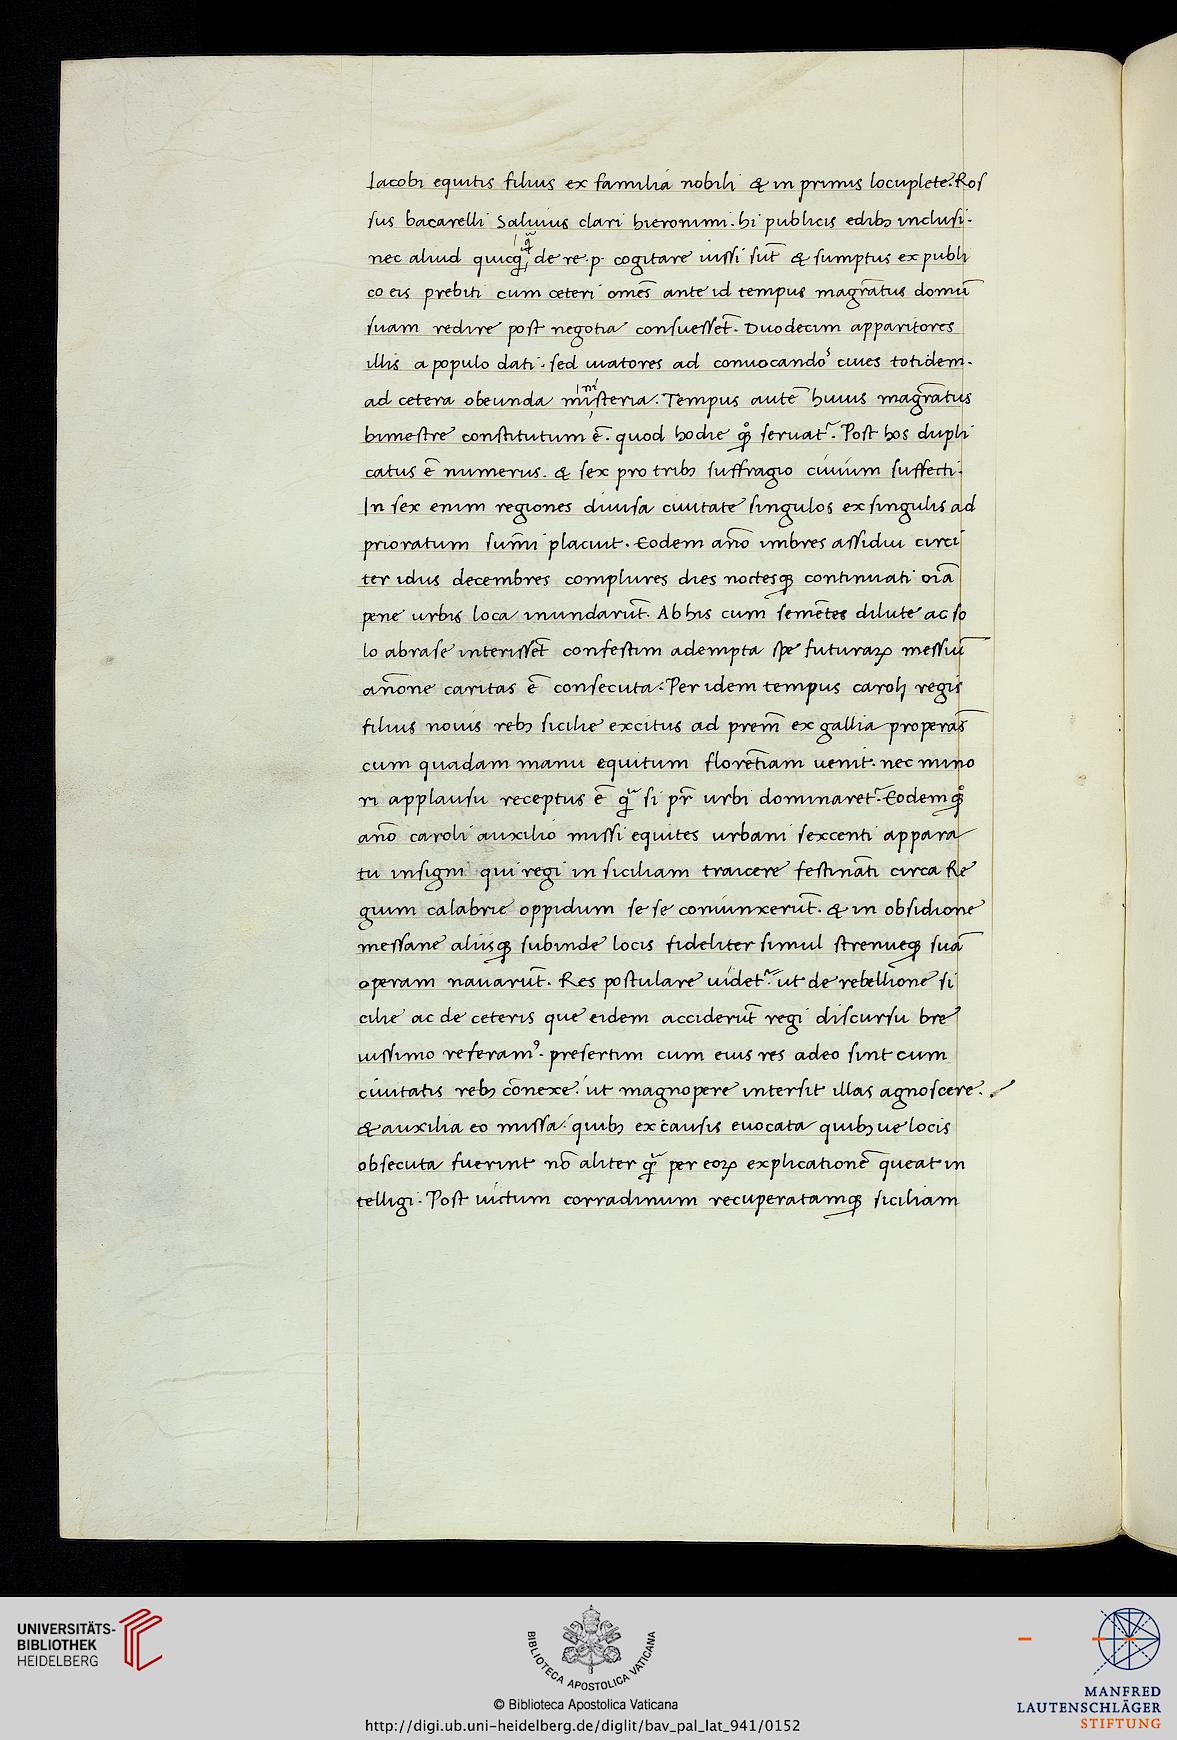 Iacobi equitis filius ex familia nobili & in primis locuplete. Ros
sus bacarelli Saluius clari hieronimi. hi publicis edibꝫ inclusi.
nec aliud quicq̃ de re .p. cogitare iussi sũt & sumptus ex publi
co eis prebiti cum ceteri omẽs ante id tempus magr̃atus domũ
suam redire post negotia consuessẽt. Duodecim apparitores
illis a populo dati. sed uiatores ad conuocandoˢ ciues totidem.
ad cetera obeunda miniſteria. Tempus autẽ huius magr̃atus
bimestre constitutum ẽ. quod hodie qͦꝫ seruatʳ. Post hos dupli
catus ẽ numerus. & sex pro tribꝫ suffragio ciuium suffecti.
In sex enim regiones diuisa ciuitate singulos ex singulis ad
prioratum sum̃i placuit. Eodem ãno imbres assidui circi
ter idus decembres complures dies noctesqꝫ continuati oĩa
pene urbis loca inundarũt. Ab his cum semẽtes dilute ac so
lo abrase interissẽt confestim adempta spe futuraꝝ messiũ
añone caritas ẽ consecuta. Per idem tempus carolj regis
filius nouis rebꝫ sicilie excitus ad prem̃ ex gallia properãs
cum quadam manu equitum florẽtiam uenit. nec mino
ri applausu receptus ẽ q̃ si pr̃ urbi dominaretʳ. Eodem qͦꝫ
ãno caroli auxilio missi equites urbani sexcenti appara
tu insigni qui regi in siciliam traicere festinãti circa Re
gium calabrie oppidum se se coniunxerũt. & in obsidione
messane aliisqꝫ subinde locis fideliter simul strenueqꝫ suã
operam nauarũt. Res postulare uidetʳ ut de rebellione si
cilie ac de ceteris que eidem acciderũt regi discursu bre
uissimo referamꝰ. presertim cum eius res adeo sint cum
ciuitatis rebꝫ cõnexe. ut magnopere intersit illas agnoscere.
& auxilia eo missa. quibꝫ ex causis euocata quibꝫ ue locis
obsecuta fuerint nõ aliter q̃ per eoꝝ explicationẽ queat in
telligi. Post uictum corradinum recuperatamqꝫ siciliam
UNIVERSITÄTS-
BIBLIOTHEK
HEIDELBERG
BIBLIOTECA APOSTOLICA VATICANA
© Biblioteca Apostolica Vaticana
http://digi.ub.uni-heidelberg.de/diglit/bav_pal_lat_941/0152
MANFRED
LAUTENSCHLÄGER
STIFTUNG